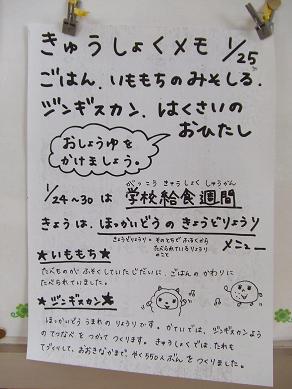 きゅうしょくメモ 1/25
ごはん、いももちのみそしる、
ジンギスカン、はくさいの
おひたし
おしょうゆを
かけましょう。
がっこう きゅうしょく しゅうかん
1/24~30は 学校給食週間
きょうは、ほっかいどうのきょうどりょうり
メニュー
きょうどりょうり。そのとちでふるくから
たべられているりょうり
のこと
★いももち★
たべものがふそくしていたじだいに、ごはんのかわりに
たべられていました。
★ジンギスカン★
ほっかいどううまれのりょうりです。かていでは、ジンギスカンよう
のてつなべをつかってつくります。きゅうしょくでは、たれも
てづくりして、おおきなかまで、やく550人ぶんをつくりました。